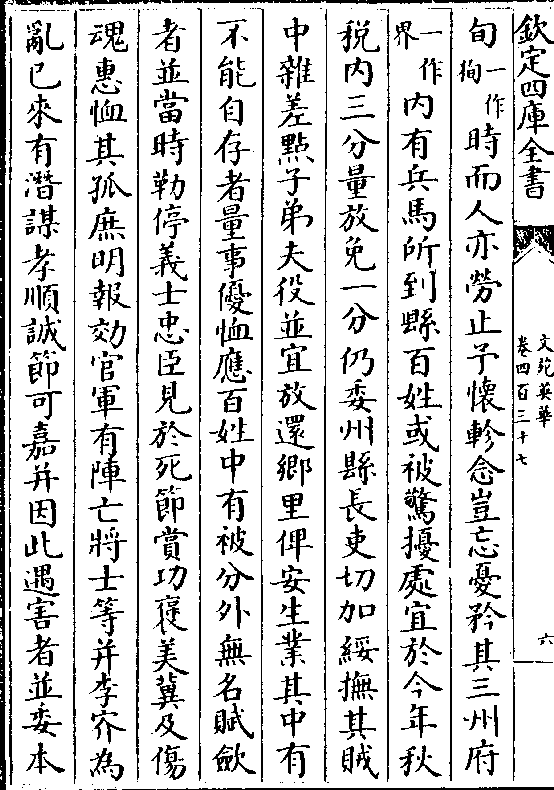 欽定四庫全書
文苑英華
卷四百三十七
六
旬一作徇時而人亦勞止予懷軫念豈忘憂矜其三州府
界一作内有兵馬所到縣百姓或被驚擾處宜於今年秋
税内三分量放免一分仍委州縣長吏切加綏撫其賊
中雜差點子弟夫役並宜放還鄉里俾安生業其中有
不能自存者量事優恤應百姓中有被分外無名賦歛
者並當時勒停義士忠臣見於死節賞功褒美冀及傷
魂惠恤其孤庶明報効官軍有陣亡將士等并李夰為
亂已來有潛謀孝順誠節可嘉并因此遇害者並委本